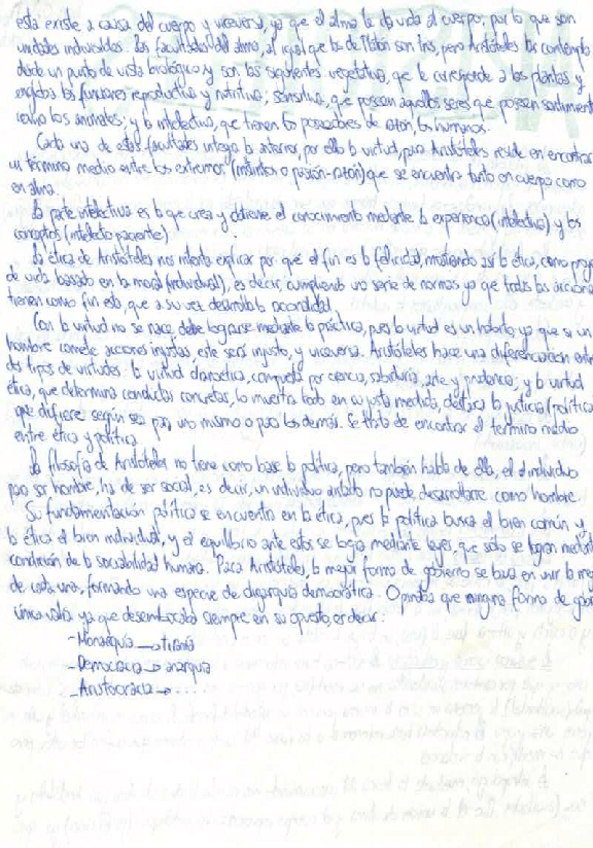 esta existe a causa del cuerpo y viceversa, ya que el alma le da vida al cuerpo, por lo que son
unidades indivisibles. Las facultades del alma, al igual que las de Platón son tres, pero Aristóteles las contempla
desde un punto de vista biológico y son las siguientes: vegetativa, que le corresponde a las plantas y
engloba las funciones reproductiva y nutritiva; sensitiva, que poseen aquellos seres que poseen sentimientos
como los animales; y la intelectiva, que tienen los poseedores de razón, los humanos.
Cada una de estas facultades integra la anterior, por ello la virtud, para Aristóteles reside en encontrar
un término medio entre los extremos (instintos o pasión-razón) que se encuentra tanto en cuerpo como
en alma.
La parte intelectiva es la que crea y obtiene el conocimiento mediante la experiencia (intelectiva) y los
conceptos (intelecto paciente).
La ética de Aristóteles nos intenta explicar por qué el fin es la felicidad, mostrando así la ética, como proy
de vida basado en la moral (individual), es decir, cumpliendo una serie de normas ya que todas las acciones
tienen como fin esto, que a su vez desarrolla la racionalidad.
Con la virtud no se nace, debe lograrse mediante la práctica, pues la virtud es un hábito, ya que si un
hombre comete acciones injustas, este será injusto, y viceversa. Aristóteles hace una diferenciación entre
dos tipos de virtudes: la virtud dianoética, compuesta por ciencia, sabiduría, arte y prudencia; y la virtud
ética, que determina conductas concretas, lo muestra todo en su justa medida, destaca la justicia (política)
que difiere según sea para uno mismo o para los demás. Se trata de encontrar el término medio
entre ética y política.
La filosofía de Aristóteles no tiene como base la política, pero también habla de ella, el individuo
para ser hombre, ha de ser social, es decir, un individuo aislado no puede desarrollarse como hombre.
Su fundamentación política se encuentra en la ética, pues la política busca el bien común y
la ética el bien individual, y el equilibrio ante estos se logra mediante leyes, que sólo se logran mediante
condición de la sociabilidad humana. Para Aristóteles, la mejor forma de gobierno se basa en unir lo mejor
de cada una, formando una especie de oligarquía democrática. Opinaba que ninguna forma de gob
única valía ya que desembocaba siempre en su opuesto, es decir:
- Monarquía → tiranía
- Democracia → anarquía
- Aristocracia → ....